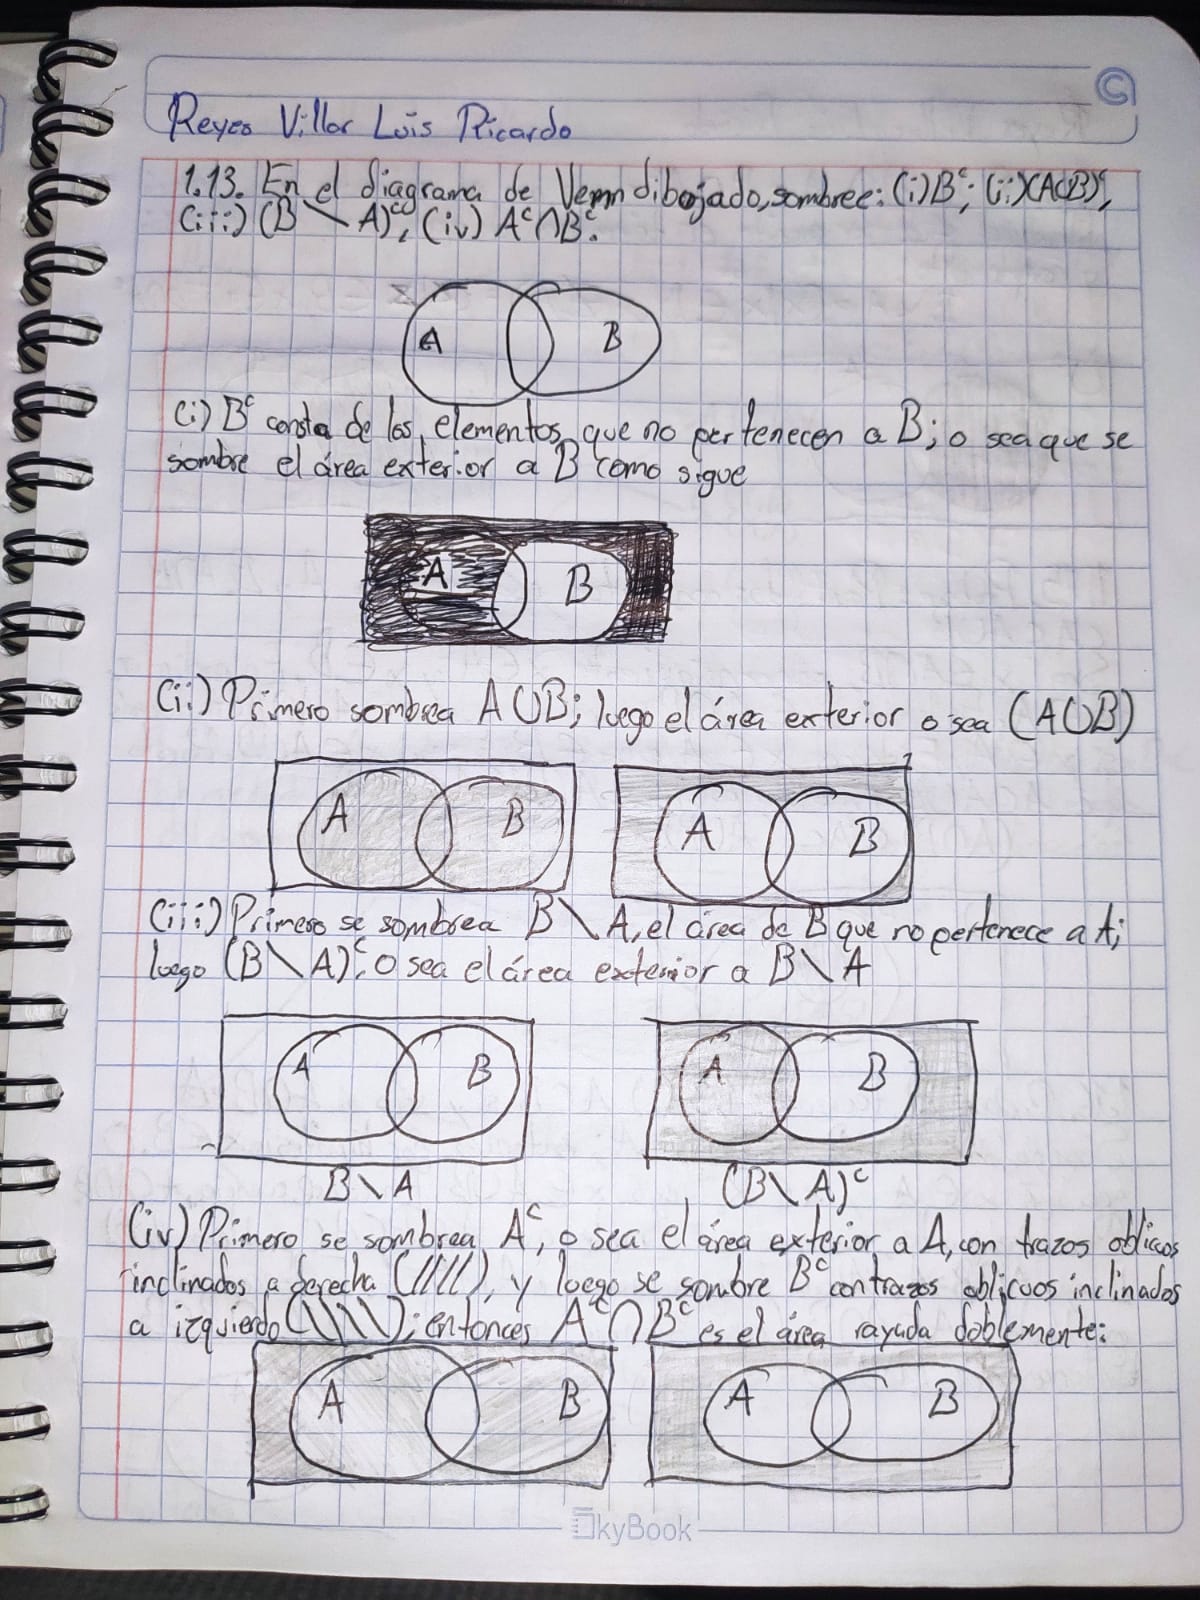 Reyes Villar Luis Ricardo
1.13. En el diagrama de Venn dibujado, sombree: (i) Bᶜ; (ii) (A∪B)ᶜ,
(iii) (B \ A)ᶜ, (iv) Aᶜ∩Bᶜ.
A B
(i) Bᶜ consta de los elementos que no pertenecen a B; o sea que se
sombre el área exterior a B como sigue
A B
(ii) Primero sombrea A∪B; luego el área exterior o sea (A∪B)
A B A B
(iii) Primero se sombrea B \ A, el área de B que no pertenece a A;
luego (B \ A)ᶜ, o sea el área exterior a B \ A
A B A B
B \ A (B \ A)ᶜ
(iv) Primero se sombrea Aᶜ, o sea el área exterior a A, con trazos oblicuos
inclinados a derecha (/////), y luego se sombre Bᶜ con trazos oblicuos inclinados
a izquierdo (\\\\); entonces Aᶜ∩Bᶜ es el área rayada doblemente:
A B A B
SkyBook